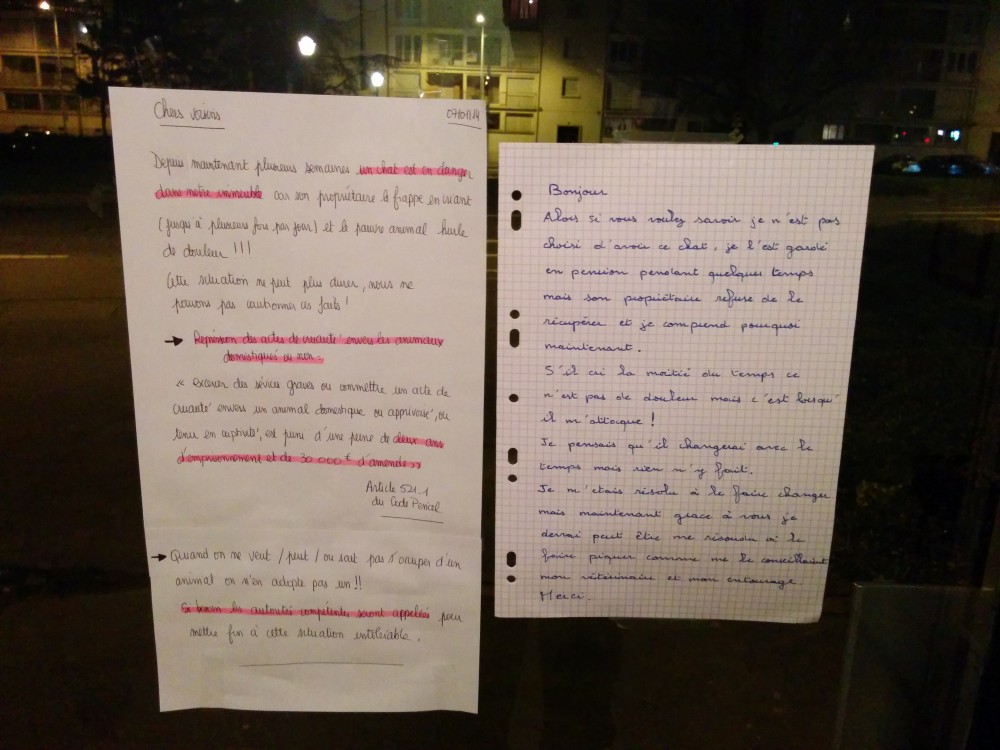 Chers voisins
07/01/14
Depuis maintenant plusieurs semaines un chat est en danger
dans notre immeuble car son propriétaire le frappe en criant
(jusqu'à plusieurs fois par jour) et le pauvre animal hurle
de douleur !!!
Cette situation ne peut plus durer, nous ne
pouvons pas cautionner ces faits !
→ Répression des actes de cruauté envers les animaux
domestiques ou non -
" exercer des sévices graves ou commettre un acte de
cruauté envers un animal domestique ou apprivoisé, ou
tenu en captivité, est puni d'une peine de deux ans
d'emprisonnement et de 30 000 € d'amende "
Article 521_1
du Code Penal
→ Quand on ne veut / peut / ou sait pas s'occuper d'un
animal on n'en adopte pas un !!
Si besoin les autorités compétentes seront appelées pour
mettre fin à cette situation intolérable.
Bonjour
Alors si vous voulez savoir je n'est pas
choisi d'avoir ce chat, je l'est gardé
en pension pendant quelques temps
mais son propriétaire refuse de le
récupérer et je comprend pourquoi
maintenant.
S'il cri la moitié du temps ce
n'est pas de douleur mais c'est lorsqu'
il m'attaque !
Je pensais qu'il changerai avec le
temps mais rien n'y fait.
Je m'étais résolu à le faire changer
mais maintenant grace à vous je
devrai peut être me résoudre à le
faire piquer comme me le conseillaient
mon vétérinaire et mon entourage.
Merci.